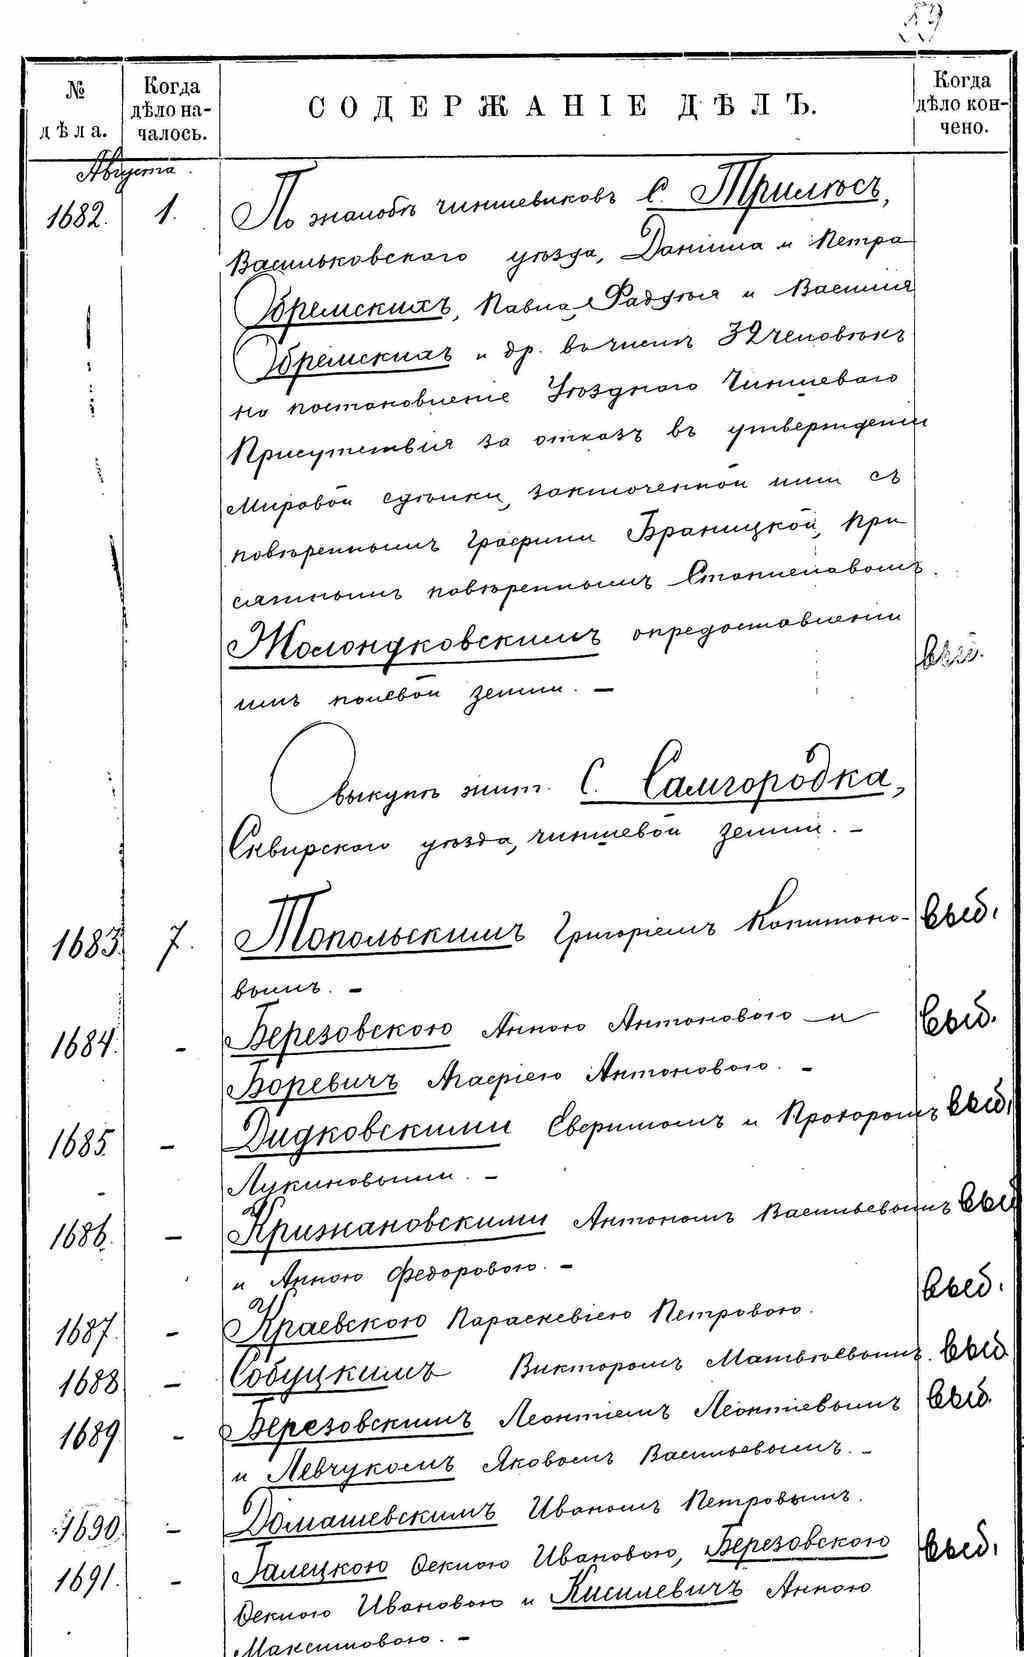 89
№ дѣла.
Когда дѣло началось.
СОДЕРЖАНІЕ ДѢЛЪ.
Когда дѣло кончено.
Августа
1682. 1. По жалобѣ чиншевиковъ С. Трилѣсъ,
Васильковскаго уѣзда, Даніила и Петра
Обремскихъ, Павла Фадѣя и Василія
Обремскихъ и др. въ числѣ 32 человѣкъ
на постановленіе Уѣзднаго Чиншеваго
Присутствія за отказъ въ утвержденіи
мировой сдѣлки, заключенной ими съ
повѣреннымъ Графини Браницкой, при
сяжнымъ повѣреннымъ Станиславомъ
Жолондковскимъ о предоставленіи
имъ полевой земли. – выб.
О выкупѣ жит. С. Самгородка,
Сквирскаго уѣзда, чиншевой земли. –
1683. 7. Топольскимъ Григоріемъ Капитоно- выб.
вымъ. –
1684. – Березовскою Анною Антоновою и выб.
Боревичъ Агафіею Антоновою. –
1685. – Дидковскими Севериномъ и Прохоромъ выб.
Лукиновыми. –
1686. – Крижановскими Антономъ Васильевымъ выб
и Анною Федоровою. –
1687. – Краевскою Параскевіею Петровою. выб.
1688 – Собуцкимъ Викторомъ Матвѣевымъ. выб
1689. – Березовскимъ Леонтіемъ Леонтіевымъ выб.
и Левчукомъ Яковомъ Васильевымъ. –
1690. – Домашевскимъ Иваномъ Петровымъ.
1691. – Галецкою Феклою Ивановою, Березовскою выб.
Феклою Ивановою и Кисилевичъ Анною
Максимовою. –